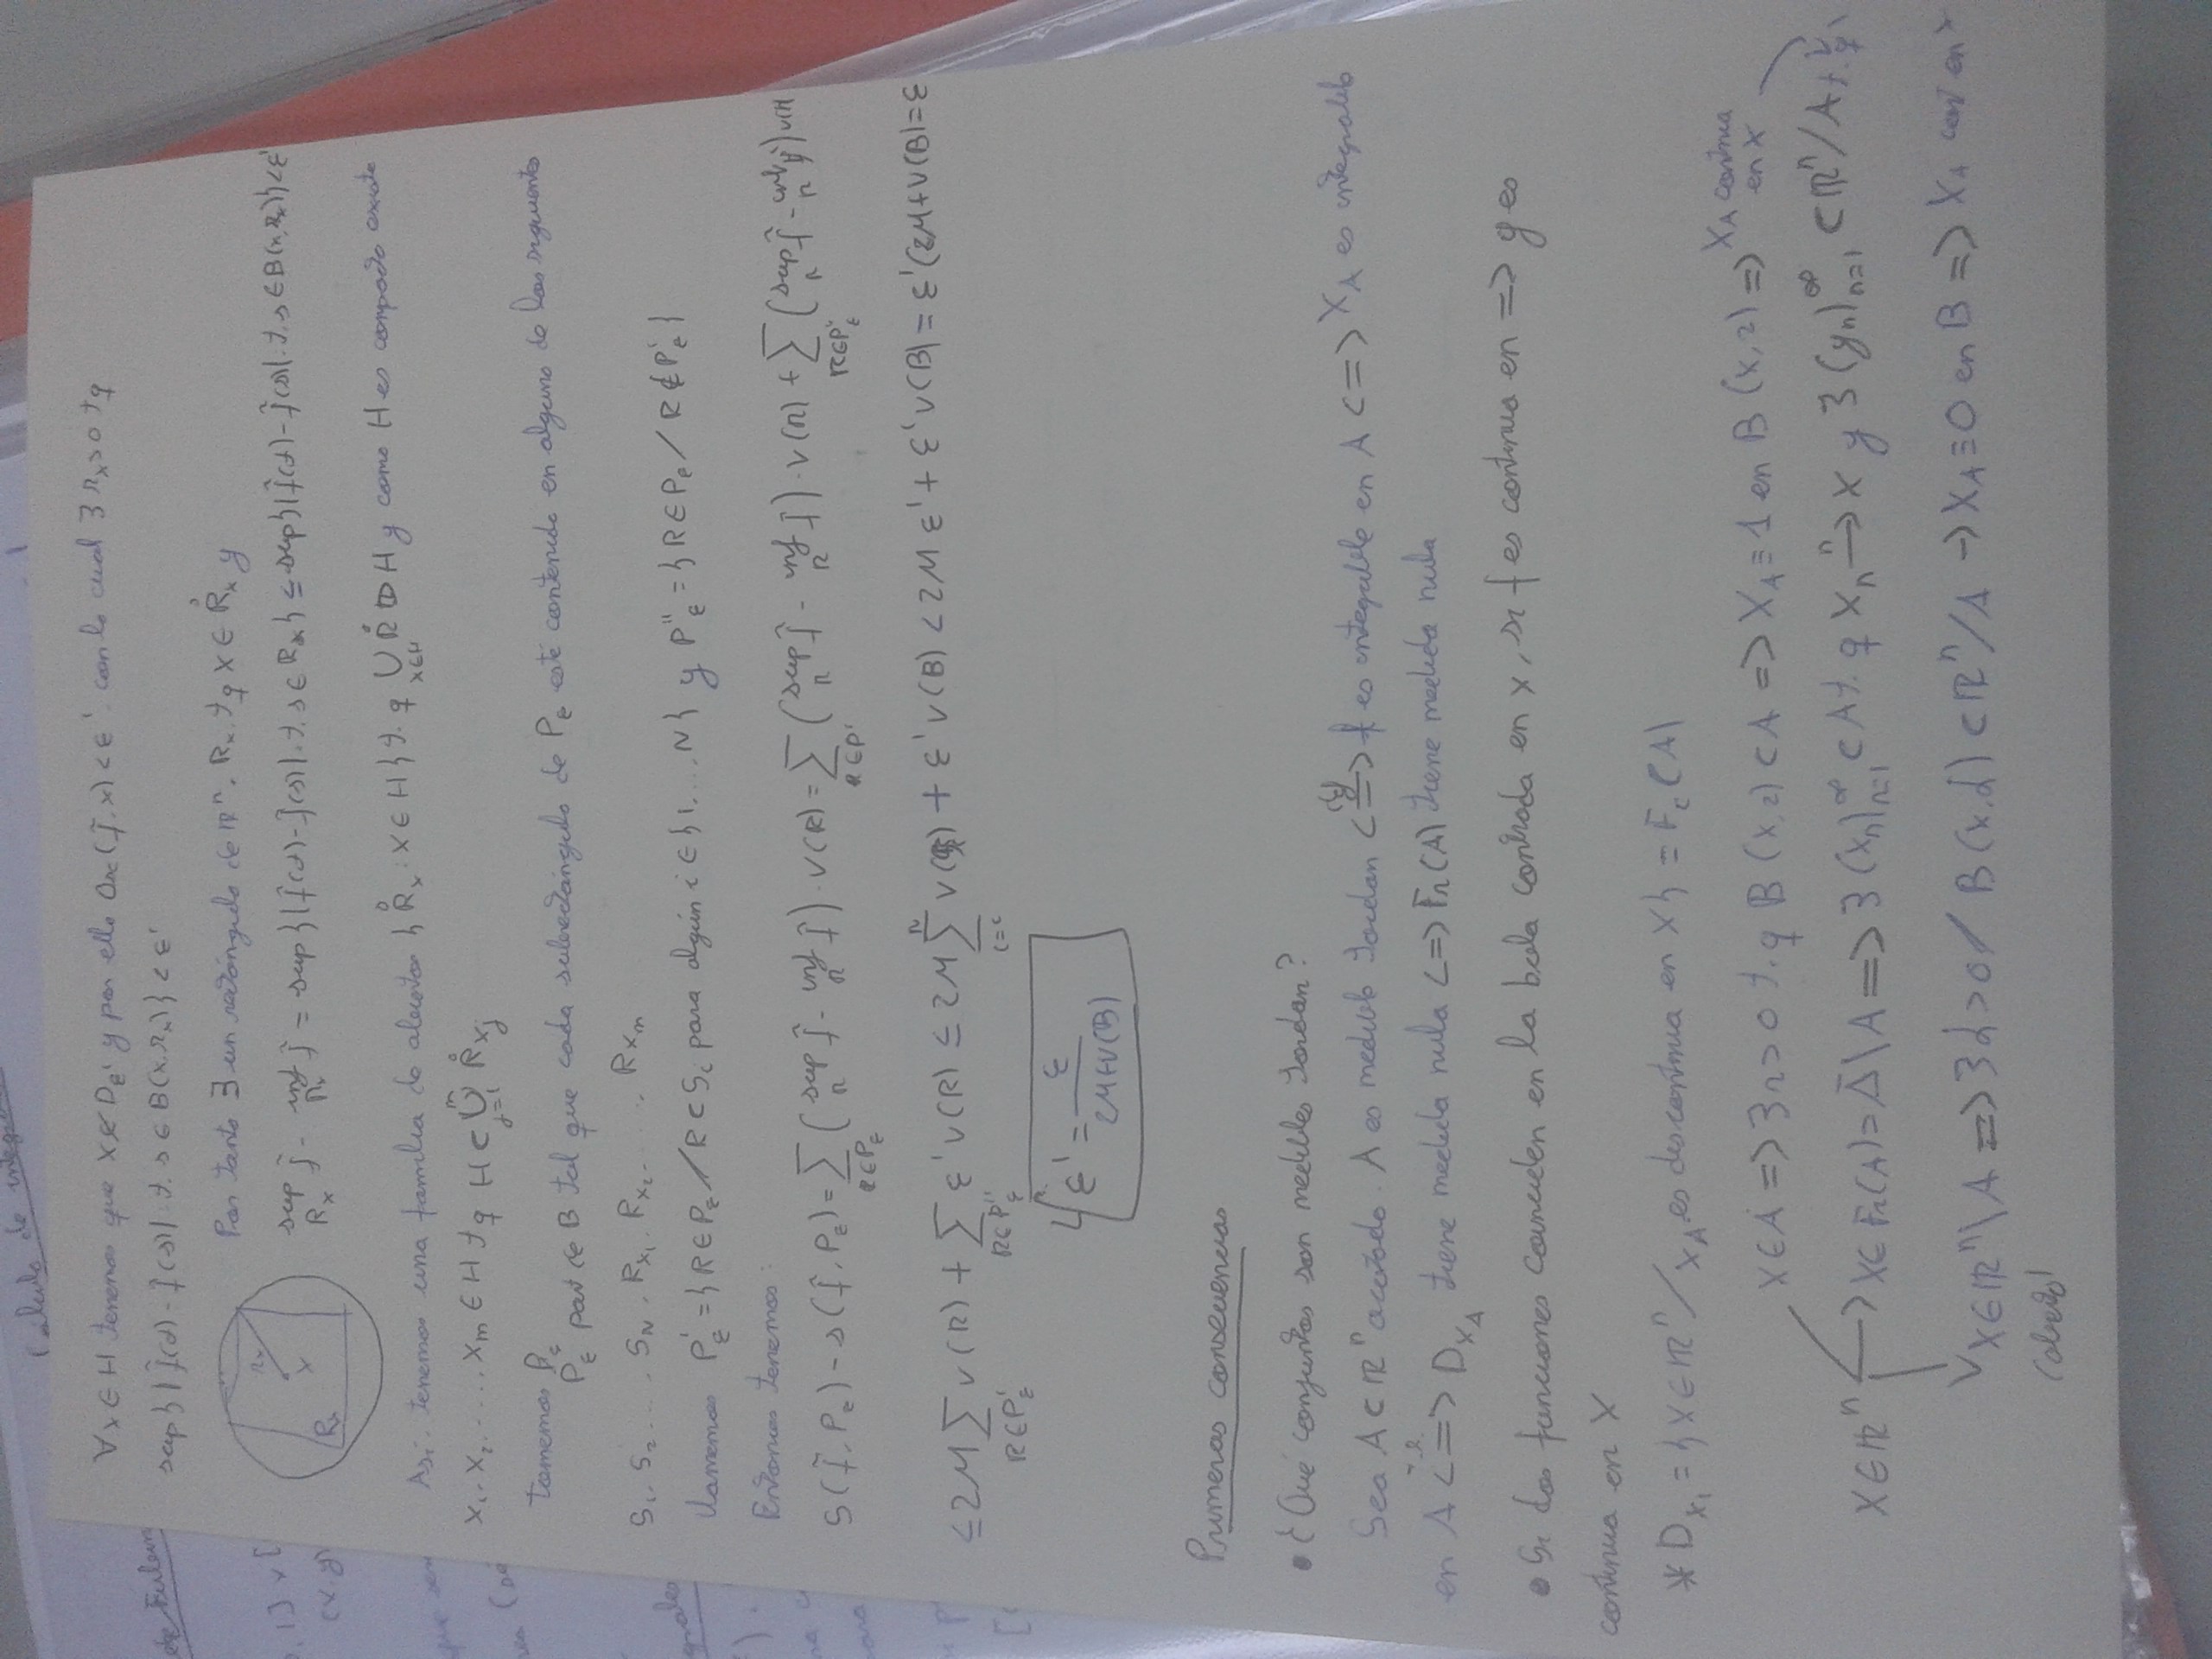 Cálculo de integra
∀x∈H tenemos que x∉D_ε' y por ello Osc(f̃,x)<ε'. con lo cual ∃ r_x>0 tq
sup{|f̃(t)-f̃(s)|: t,s∈B(x,r_x)}<ε'
Por tanto ∃ un rectángulo de ℝⁿ, R_x, tq x∈R̊_x y
sup_{R_x} f̃ - inf_{R_x} f̃ = sup{|f̃(t)-f̃(s)|: t,s∈R_x} ≤ sup{|f̃(t)-f̃(s)|: t,s∈B(x,r_x)}<ε'
r_x
x
R_x
Así, tenemos una familia de abiertos {R̊_x: x∈H} t.q ∪_{x∈H} R̊ ⊃ H y como H es compacto existe
x₁,x₂,...,x_m∈H tq H⊂∪_{j=1}^m R̊_{x_j}
tomemos P_ε
P_ε part de B tal que cada subrectángulo de P_ε esté contenido en alguno de los siguientes
S₁,S₂,...,S_N, R_{x₁}, R_{x₂},..., R_{x_m}
Llamamos P'_ε={R∈P_ε/R⊂S_i para algún i∈{1,...,N} y P''_ε={R∈P_ε/R∉P'_ε}
Entonces tenemos:
S(f̃,P_ε)-s(f̃,P_ε)=∑_{R∈P_ε}(sup_R f̃ - inf_R f̃)·v(R)=∑_{R∈P'_ε}(sup_R f̃ - inf_R f̃)·v(R)+∑_{R∈P''_ε}(sup_R f̃ - inf_R f̃)v(R)
≤2M∑_{R∈P'_ε}v(R)+∑_{R∈P''_ε}ε'v(R)≤2M∑_{i=1}^N v(S_i)+ε'v(B)<2Mε'+ε'v(B)=ε'(2M+v(B))=ε
ε'=ε/(2M+v(B))
Primeras consecuencias
• ¿Qué conjuntos son medibles Jordan?
Sea A⊂ℝⁿ acotado. A es medible Jordan <=> f es integrable en A <=> χ_A es integrable
en A <=> D_{χ_A} tiene medida nula <=> Fr(A) tiene medida nula
• Si dos funciones coinciden en la bola centrada en x, si f es continua en => g es
continua en x
* D_{χ_A}={x∈ℝⁿ/χ_A es descontinua en x}=Fr(A)
x∈ℝⁿ
x∈Å=>∃r>0 t.q B(x,r)⊂A=>χ_A≡1 en B(x,r)=>χ_A continua en x
x∈Fr(A)=Ā\Å=>∃(x_n)_{n=1}^∞⊂A t.q x_n→x y ∃(y_n)_{n=1}^∞⊂ℝⁿ/A t.q
x∈ℝⁿ\A=>∃d>0/B(x,d)⊂ℝⁿ/A→χ_A≡0 en B=>χ_A cont en x
(abierto)